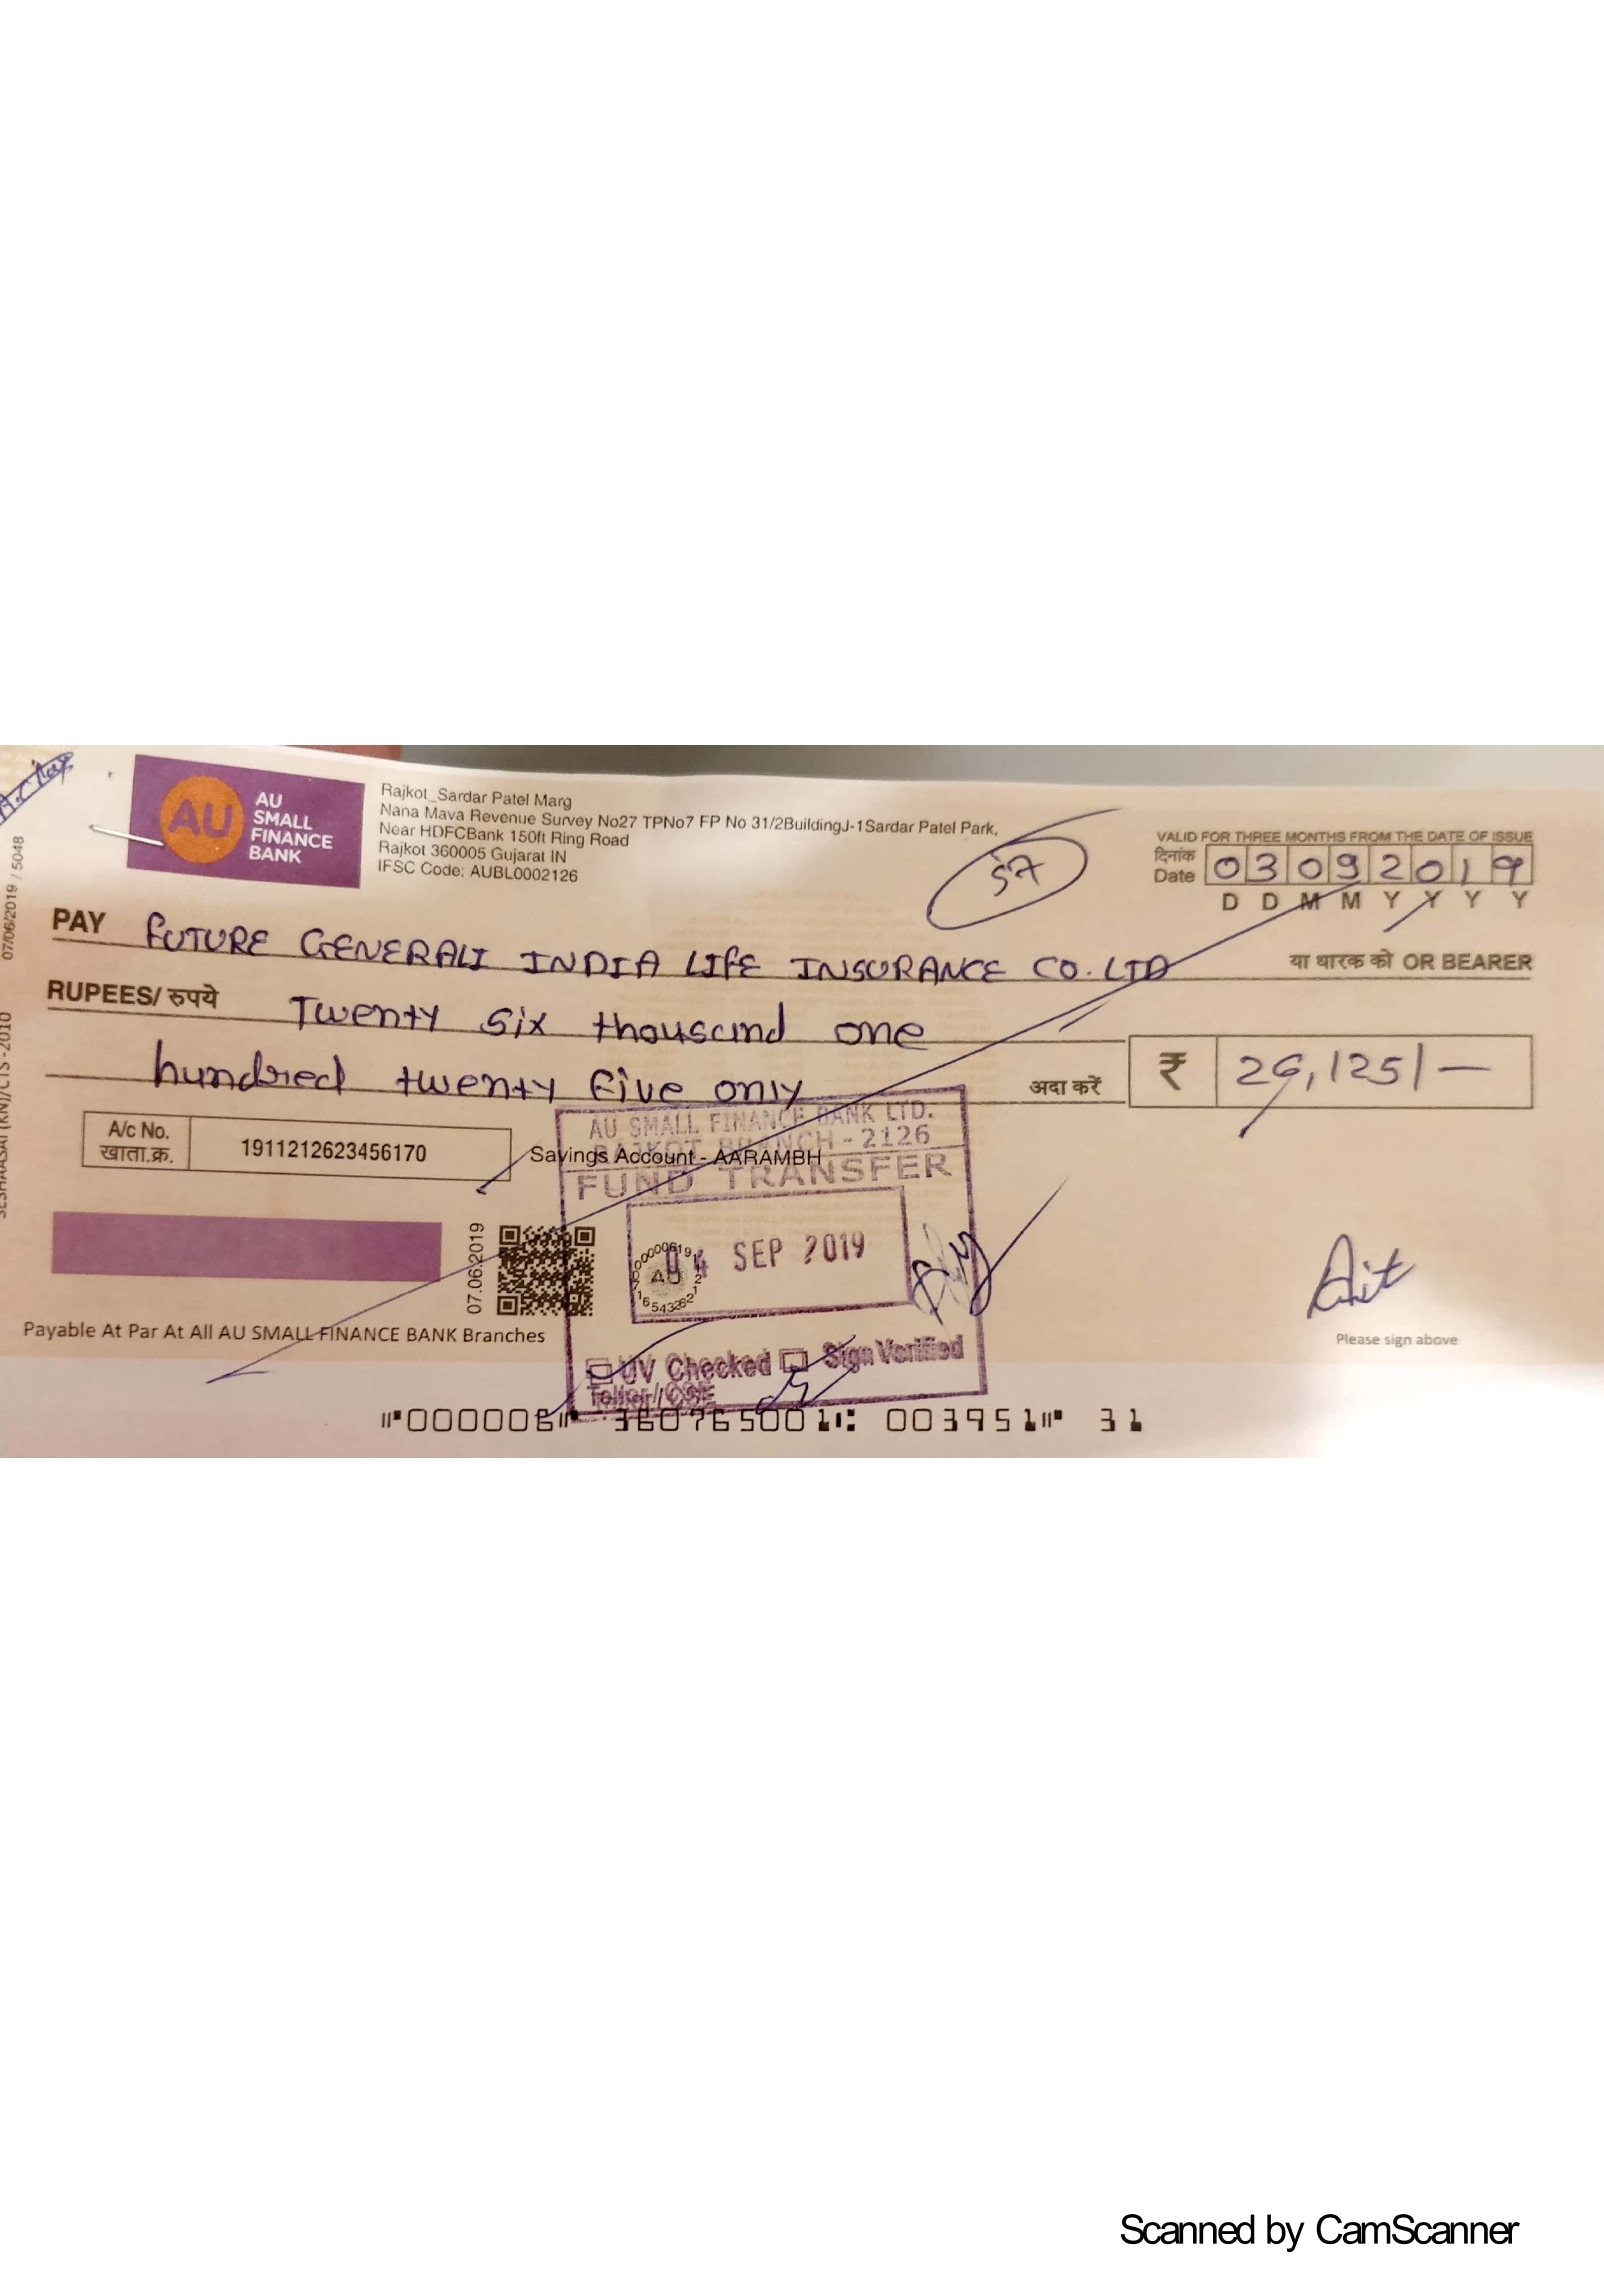 AU
AU
SMALL
FINANCE
BANK
Rajkot_Sardar Patel Marg
Nana Mava Revenue Survey No27 TPNo7 FP No 31/2BuildingJ-1Sardar Patel Park,
Near HDFCBank 150ft Ring Road
Rajkot 360005 Gujarat IN
IFSC Code: AUBL0002126
VALID FOR THREE MONTHS FROM THE DATE OF ISSUE
दिनांक
Date 03092019
D D M M Y Y Y Y
07/06/2019 / 5048
PAY FUTURE GENERALI INDIA LIFE INSURANCE CO. LTD या धारक को OR BEARER
RUPEES/ रुपये Twenty six thousand one
hundred twenty five only अदा करें ₹ 26,125/-
A/c No.
खाता.क्र. 1911212623456170
Savings Account - AARAMBH
AU SMALL FINANCE BANK LTD.
RAJKOT BRANCH - 2126
FUND TRANSFER
04 SEP 2019
07.06.2019
UV Checked Sign Verified
Teller/CSE
Payable At Par At All AU SMALL FINANCE BANK Branches
Please sign above
⑈000006⑈ 360765001⑆ 003951⑈ 31
Scanned by CamScanner